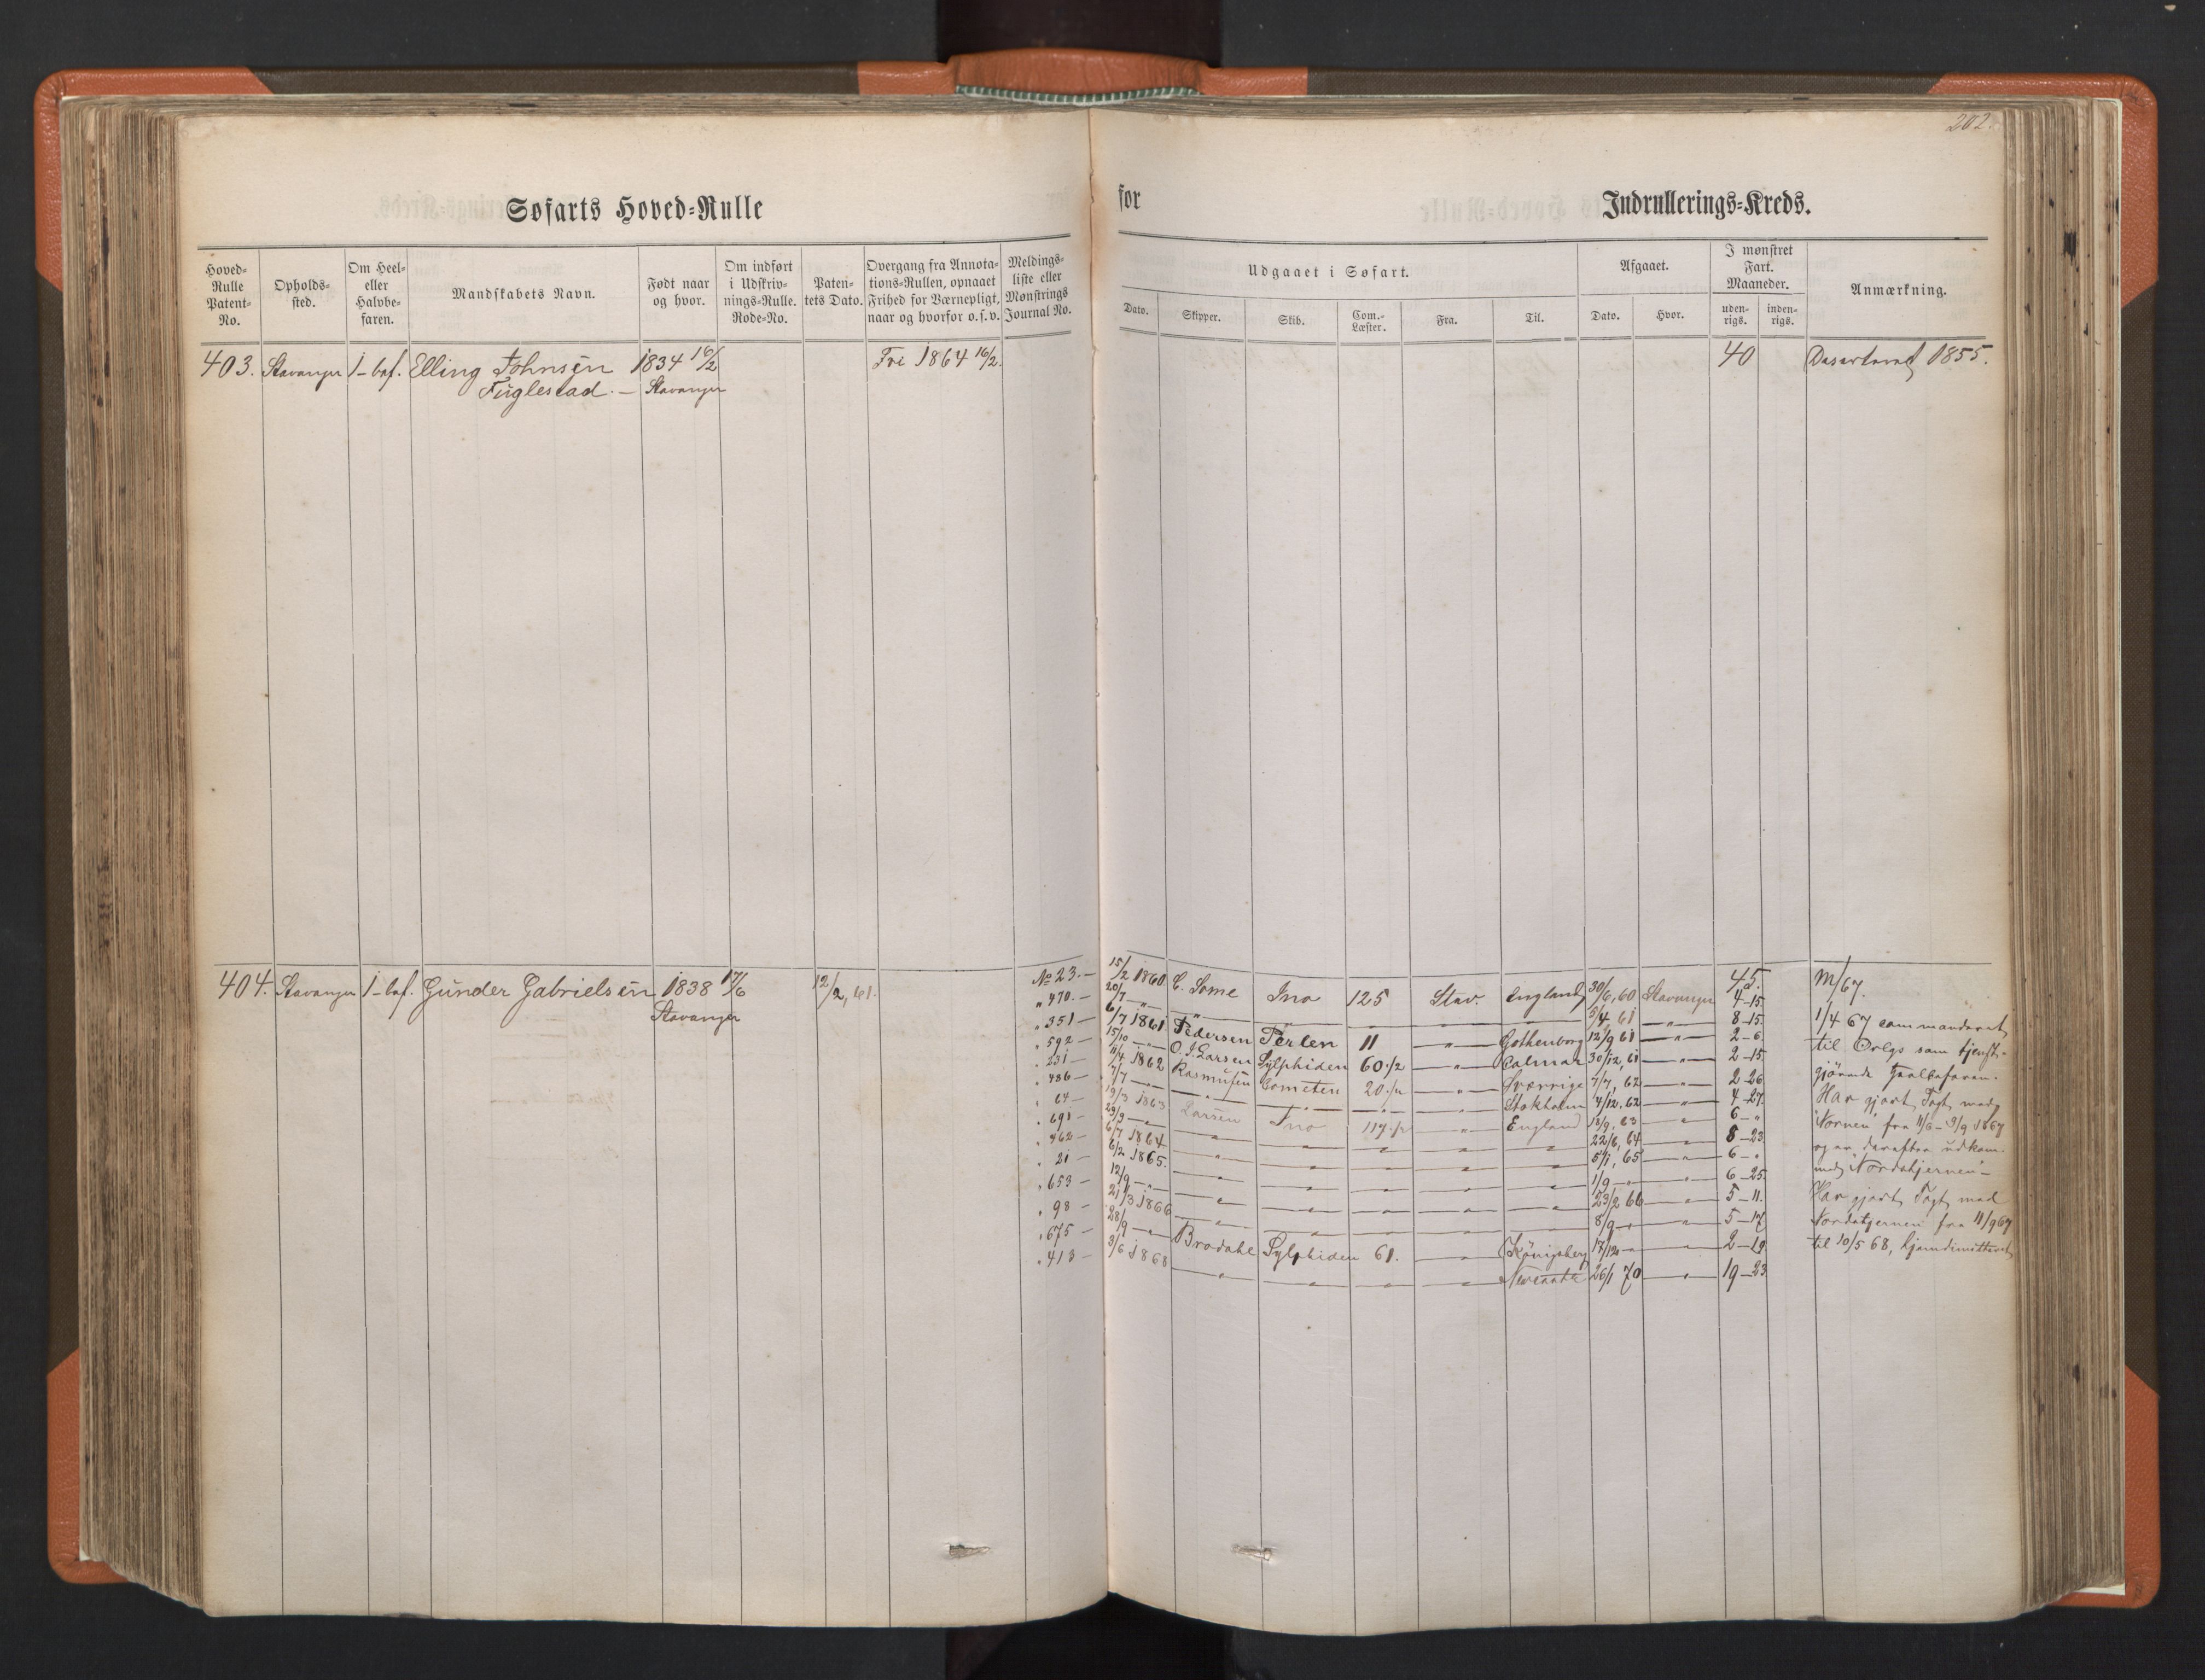 202.
Søfarts Hoved-Rulle for Indrullerings-Kreds.
Hoved-Rulle Patent-No. Opholds-sted. Om Heel- eller Halvbe-faren. Mandskabets Navn. Født naar og hvor. Om indført i Udskriv-nings-Rulle. Rode-No. Paten-tets Dato. Overgang fra Annota-tions-Rullen, opnaaet Frihed for Værnepligt, naar og hvorfor o.s.v. Meldings-liste eller Mønstrings Journal No.
Udgaaet i Søfart. Afgaaet. I mønstret Fart. Maaneder. Anmærkning.
Dato. Skipper. Skib. Com.-Læster. Fra. Til. Dato. Hvor. uden-rigs. inden-rigs.
403. Stavanger 1-bef. Elling Johnsen 1834 16/2 Fri 1864 16/2. 40 1855.
Fuglestad. — Stavanger
404. Stavanger 1-bef. Gunder Gabrielsen 1838 17/6 12/2, 61.
Stavanger
No 23.— 15/2 1860 C. Some Ino 125 Stav. England 30/6, 60 Stavanger 45. 4-15
" 470.— 20/7 —"— " — — — — 5/4 61 —"— 8-15
" 351— 6/7 1861 Pedersen Perlen 11 —"— Gothenborg 12/9 61 —"— 2-6
" 592— 15/10 —"— O. J. Larsen Sylphiden 60 1/2 —"— Calmar 30/12, 61 —"— 2-15
" 231— 11/4 1862 Rasmusen Cometen 20 1/2 —"— Sverrige 7/7, 62 —"— 2-26
" 486— 7/7 —"— —"— —"— —"— —"— Stokholm 4/12, 62 —"— 4-27
" 64— 19/3 1863 Larsen Ino 117 1/2 —"— England 18/9, 63 —"— 6-"
" 691— 29/9 —"— —"— —"— —"— —"— —"— 22/6, 64 —"— 8-23
" 462— 6/7 1864 —"— —"— —"— —"— —"— 5/1, 65 —"— 6-"
" 21— 6/2 1865. —"— —"— —"— —"— —"— 1/9 —"— —"— 6-25
" 653— 12/9 —"— —"— —"— —"— —"— —"— 23/2 66 —"— 5-11.
" 98— 21/3 1866 —"— —"— —"— —"— —"— 8/9 —"— —"— 5-17
" 675— 28/9 —"— Brodahl Sylphiden 61. —"— Königsberg 17/12 —"— —"— 2-19
" 413— 3/6 1868 —"— —"— —"— —"— 26/1 70 —"— 19-23
M/67.
1/4 67 commanderet
til Orlgs som tjenst-
gjørende heelbefaren.
Har gjort Togt med
"Nornen" fra 11/6-3/9 1867
og er derefter udkom.
med "Nordstjernen"—
Har gjort Togt med
Nordstjernen fra 11/9 67
til 10/5 68, hjemdimitteret